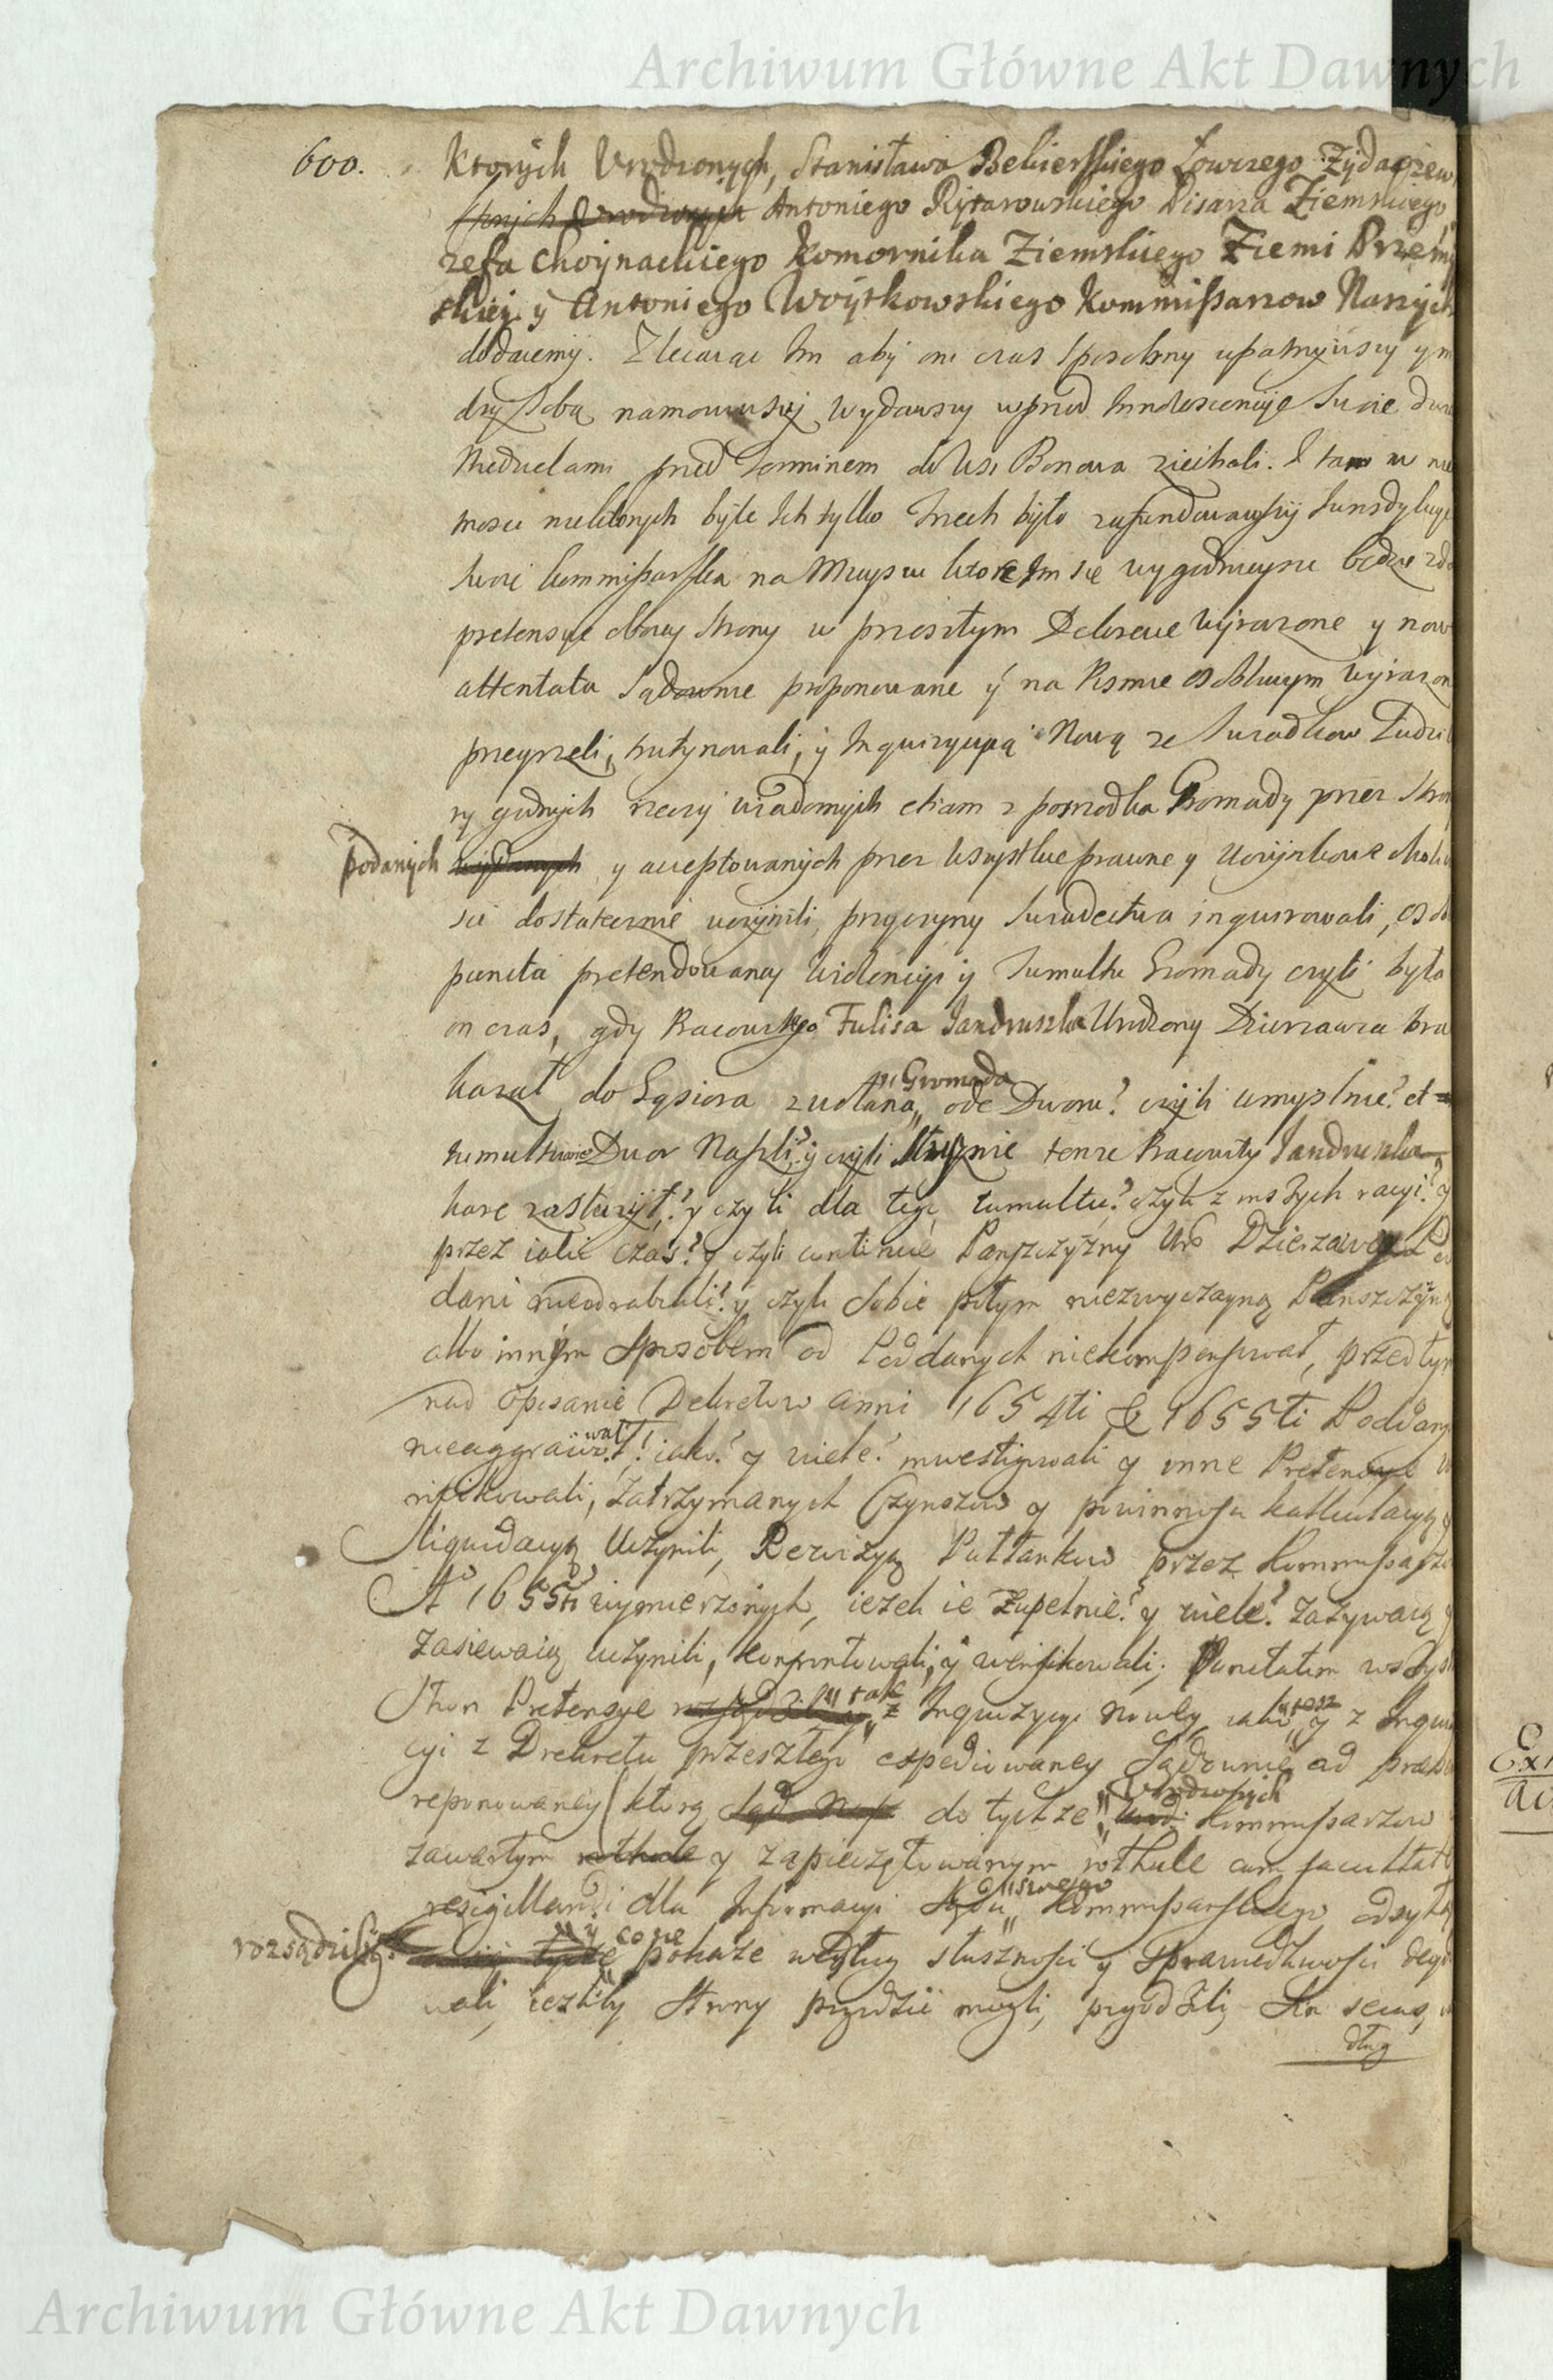 Archiwum Główne Akt Dawnych
600. Ktorych Vrodzonych, Stanisława Bekierskiego Łowczego Zydaczew
Antoniego Rytarowskiego Pisarza Ziemskiego
zefa Choynackiego Komornika Ziemskiego Ziemi Przemy
skiey y Antoniego Woytkowskiego Kommissarzow Naszych
dodaiemy. Zlecaiąc Im aby oni czas sposobny upatrzywszy y m
dzy sobą namowiwszy wydawszy wprzod Innotescencye swoie dwie
Niedzielami przed Terminem do Wsi Bonowa ziechali. I tam w nie
mosci niektorych byle Ich tylko Trzech było zafundowawszy Iurisdykcyą
swoię kommissarską na Mieyscu ktore Im się wygodnieysze będzie zda
pretensye obowy strony w przeszłym Dekrecie wyrazone y now
attentata Sądownie proponowane y na Pismie osobliwym wyrazon
przeyrzeli, trutynowali, y Inquizycyą Nową ze Swiadkow Ludzi
ry godnych rzeczy wiadomych etiam z posrzodka Gromady przez Stron
podanych y acceptowanych przez wszystkie prawne y Uczynkowe okoli
sci dostatecznie uczynili, przyczyny swiadectwa inquirowali, oso
puncta pretendowaney wiolencyi y Tumultu Gromady czyli była
on czas, gdy Pracowitego Fulisa Iandruszka Urodzony Dzierzawca bra
kazał do Gąsiora zwołana ode Dworu? czyli umyslnie? et
tumultuarie Dwor Naszli? y czyli słusznie tenze Pracowity Iandruszka
karę zasłuzył? y czyli dla tego tumultu? czyli z inszych racyi? y
przez iakie czas? y czyli continue Panszczyzny Uro Dzierzawcy Pod
dani nieodrabiali? y czyli sobie potym niezwyczayną Panszczyzną
albo innym sposobem od Poddanych niekompensował, przedtym
nad opisanie Dekretow anni 1654ti & 1655ti Poddany
nieaggrawował? iako? y wiele? inwestigowali y inne Pretensye w
rifikowali, Zatrzymanych Czynszow y powinnosci kalkulacyą y
liquidacyą Uczynili, Rewizyą Pułłankow przez Kommissarzo
A 1655ti wymierzonych, iezeli ie zupełnie? y wiele? zazywaią y
zasiewaią uczynili, konfrontowali, y weryfikowali; Punctatim wszys
Stron Pretensye tak z Inquizycyi Nowey iako tesz y z Inquizy
cyi z Dekretu przeszłego expediowaney Sądownie ad præs
reponowaney (ktorą do tychze Vrodzonych Kommissarzow
zawartym y zapieczętowanym rothule cum facultate
resigillandi dla Informacyi Sądu swego Kommissarskiego odsyła
rozsądzili y co się pokaze według słusznosci y sprawiedliwosci decy
wali, iezliby Strony przyidzie mogli, pogodzili. Sin secus, w
dług
Archiwum Główne Akt Dawnych